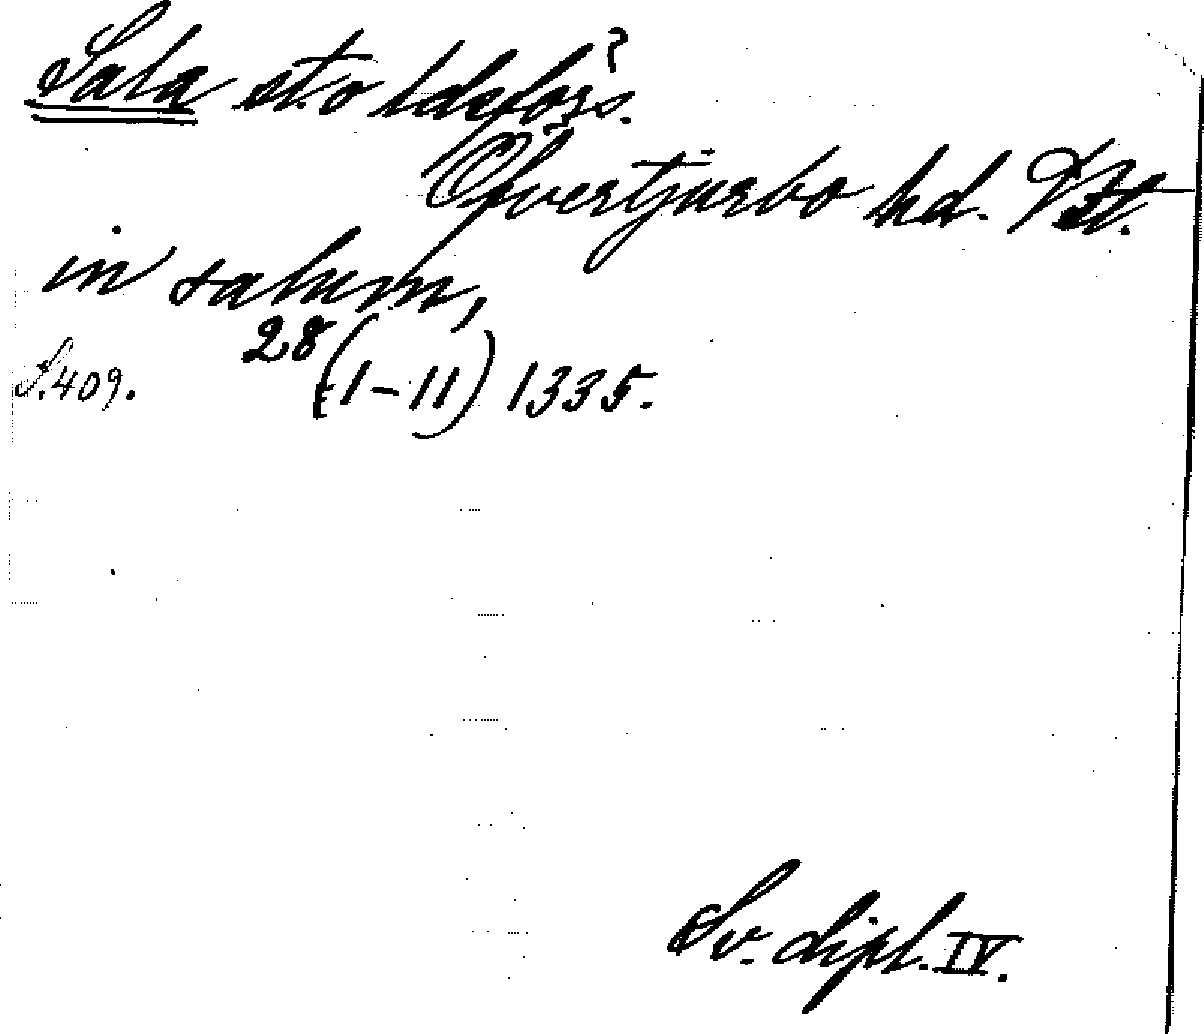 Sala st. o ldsförs. ?
Öfvertjurbo hd. Vstm.
in salum,
S. 409. 28/(1-11) 1335.
Sv. dipl. IV.